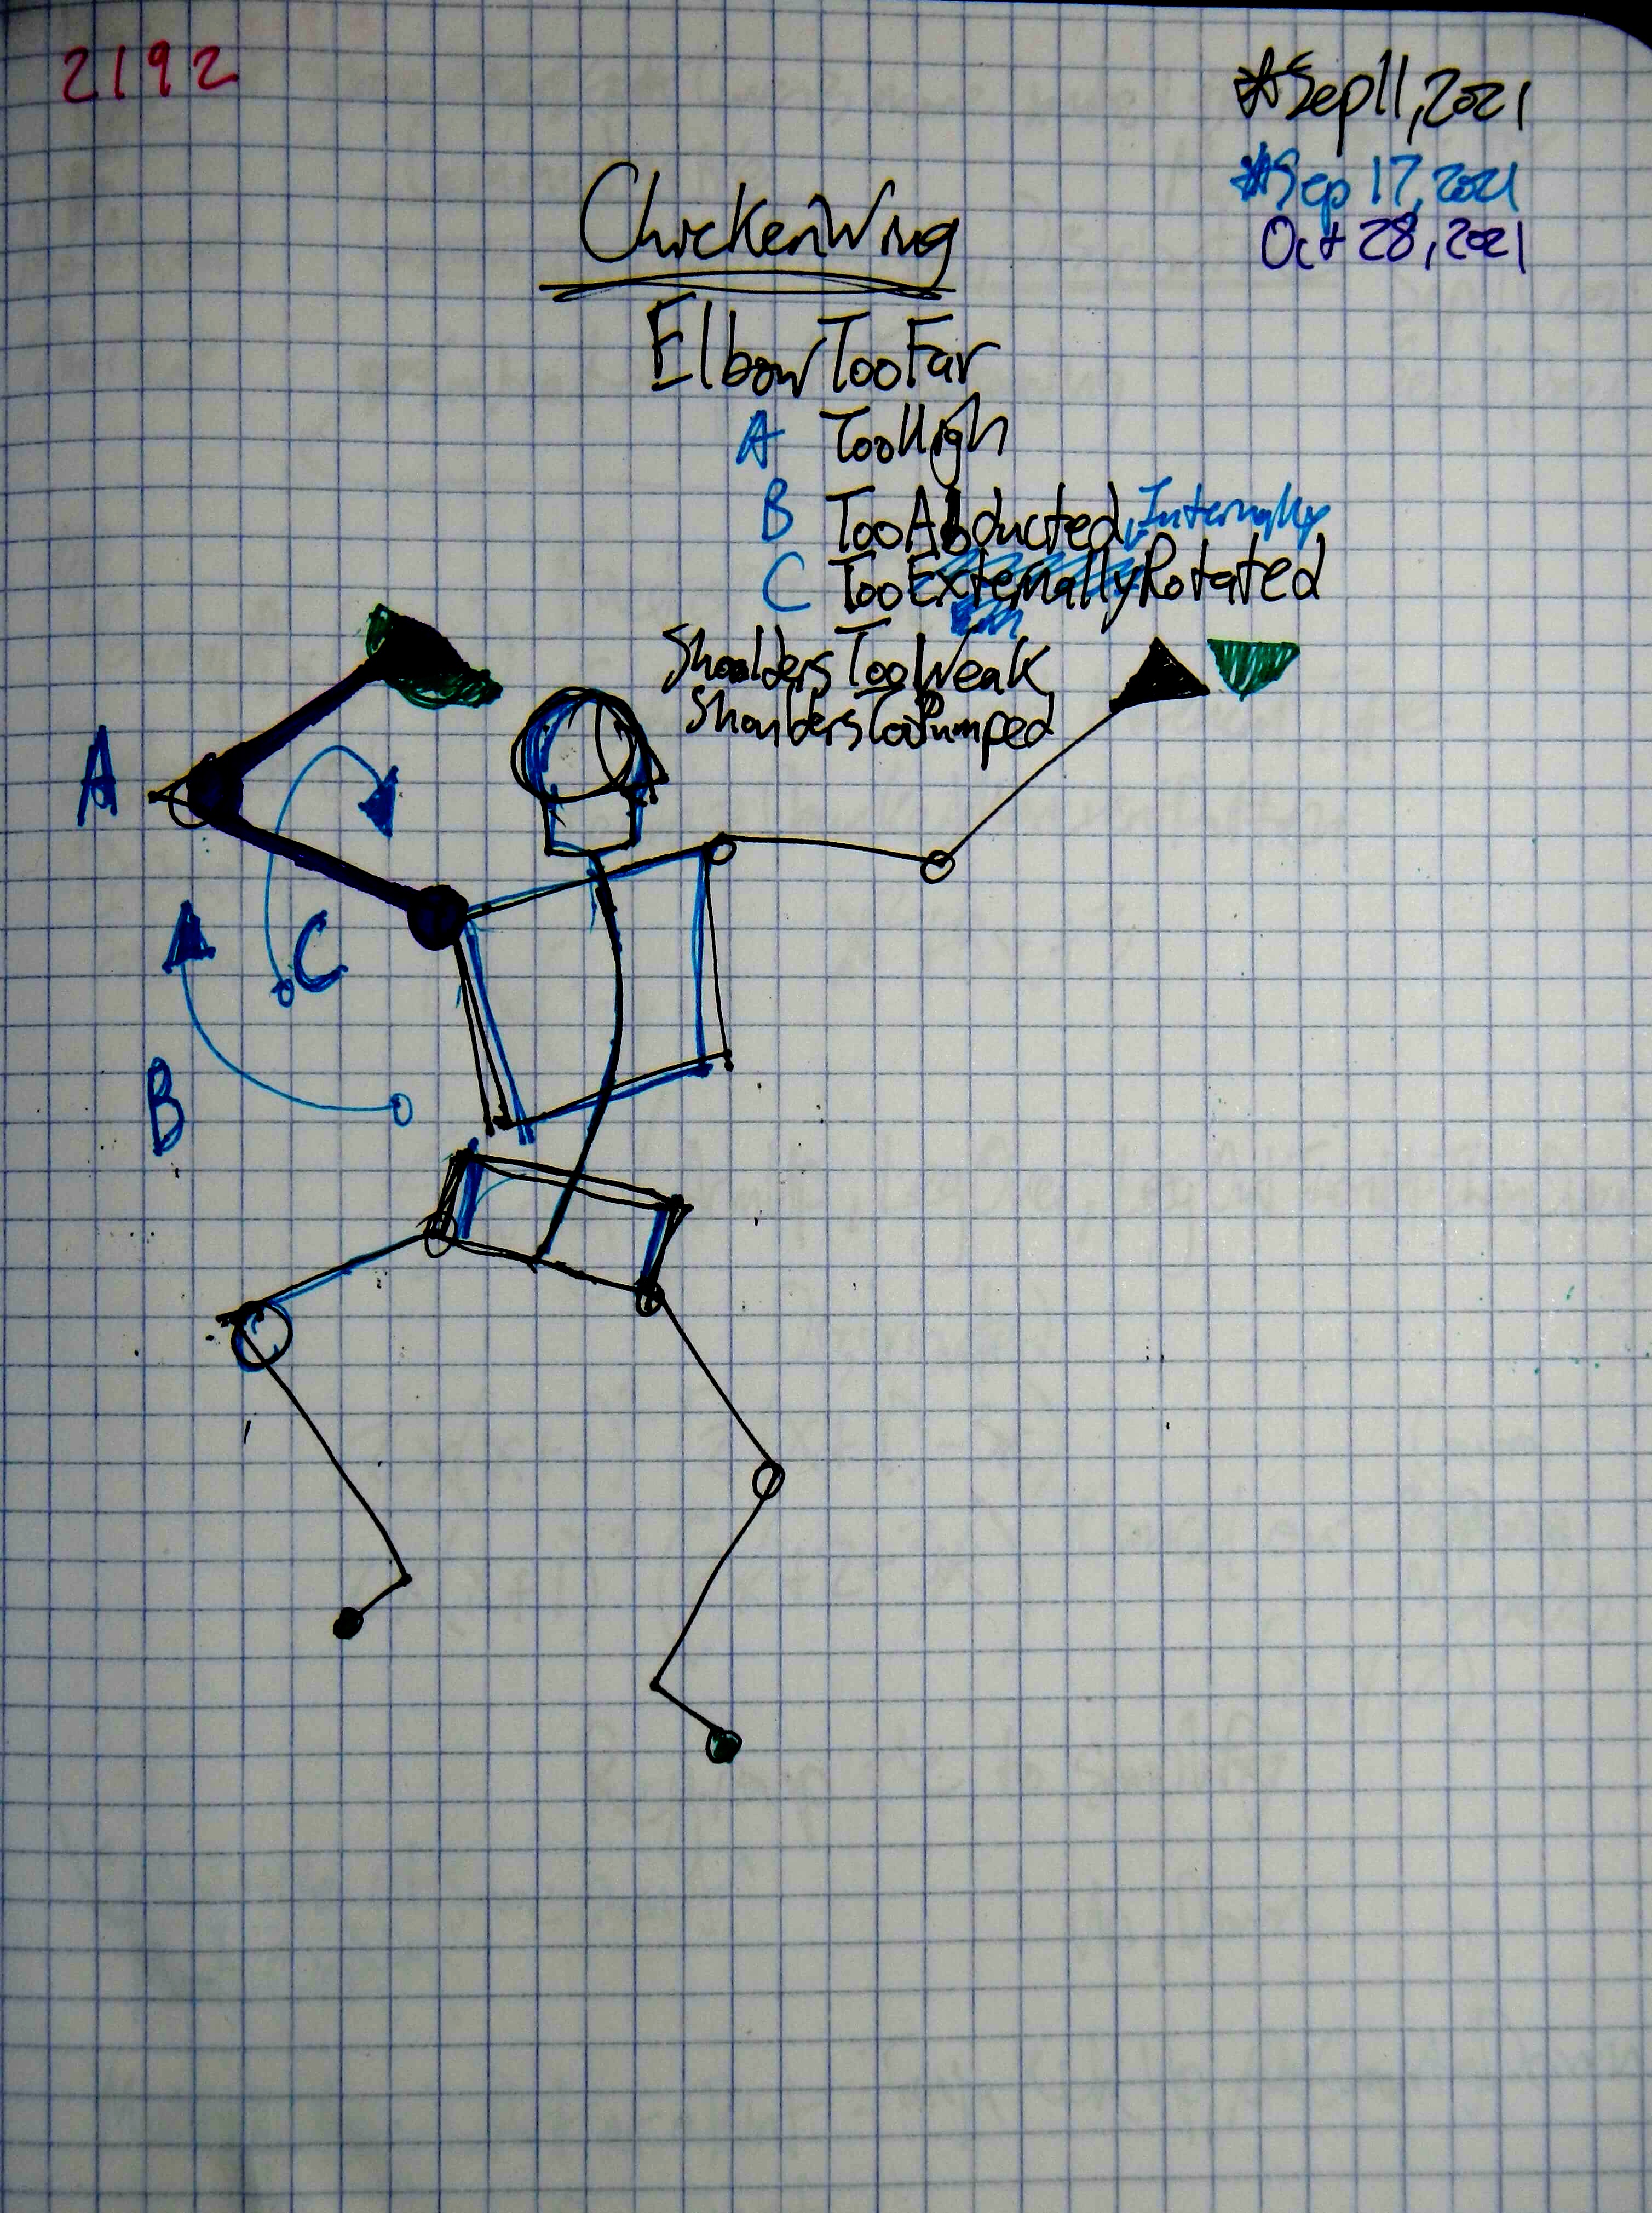 2192
*Sep11,2021
*Sep 17,2021
Oct 28,2021
ChickenWing
ElbowTooFar
A TooHigh
B TooAbducted, Internally
C TooExternallyRotated
ShouldersTooWeak
ShouldersTooPumped
A
C
B